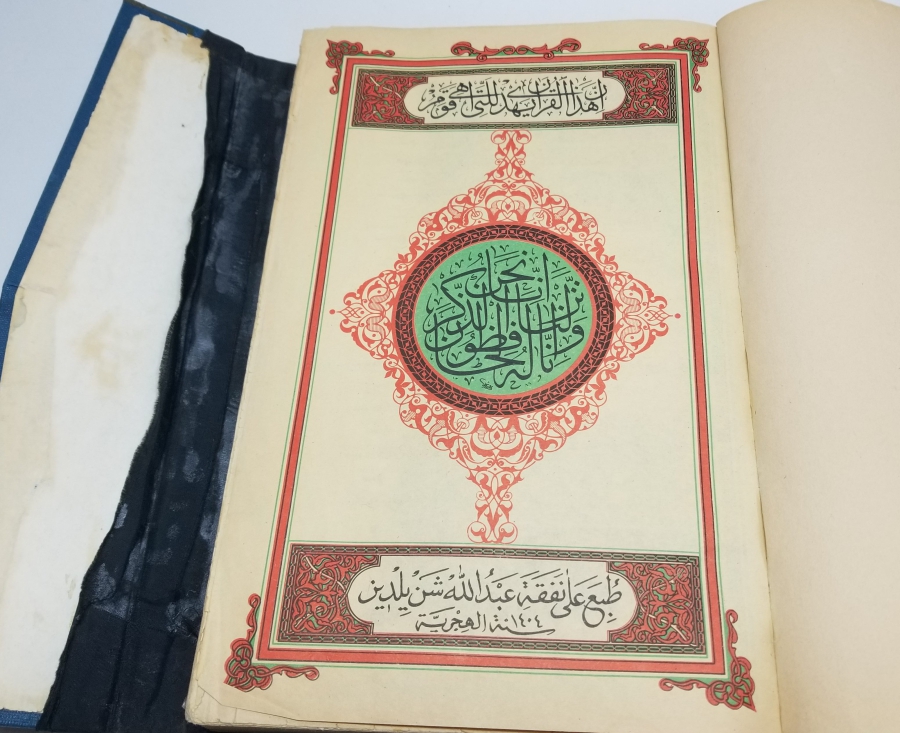 إِنَّ هَذَا الْقُرْآنَ يَهْدِي لِلَّتِي هِيَ أَقْوَمُ
إِنَّا نَحْنُ نَزَّلْنَا الذِّكْرَ وَإِنَّا لَهُ لَحَافِظُونَ
طُبِعَ عَلَى نَفَقَةِ عَبْدُ اللّٰه شَنْ يِلْدِيز
سنة ١٤٠٤ الهِجْرِيَّة